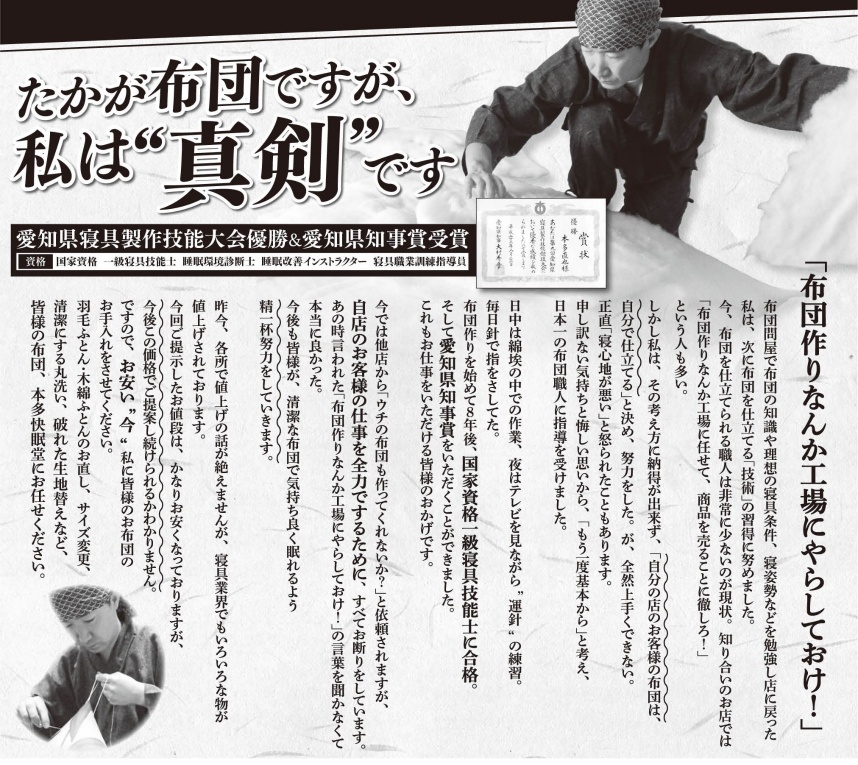 たかが布団ですが、
私は“真剣”です
愛知県寝具製作技能大会優勝&愛知県知事賞受賞
資格 国家資格 一級寝具技能士 睡眠環境診断士 睡眠改善インストラクター 寝具職業訓練指導員
賞状
優勝
本多直也様
「布団作りなんか工場にやらしておけ！」
布団問屋で布団の知識や理想の寝具条件、寝姿勢などを勉強し店に戻った
私は、次に布団を仕立てる「技術」の習得に努めました。
今、布団を仕立てられる職人は非常に少ないのが現状。知り合いのお店では
「布団作りなんか工場に任せて、商品を売ることに徹しろ！」
という人も多い。
しかし私は、その考え方に納得が出来ず、「自分の店のお客様の布団は、
自分で仕立てる」と決め、努力をした。が、全然上手くできない。
正直「寝心地が悪い」と怒られたこともあります。
申し訳ない気持ちと悔しい思いから、「もう一度基本から」と考え、
日本一の布団職人に指導を受けました。
日中は綿埃の中での作業、夜はテレビを見ながら”運針“の練習。
毎日針で指をさしてた。
布団作りを始めて8年後、国家資格一級寝具技能士に合格。
そして愛知県知事賞をいただくことができました。
これもお仕事をいただける皆様のおかげです。
今では他店から「ウチの布団も作ってくれないか？」と依頼されますが、
自店のお客様の仕事を全力でするために、すべてお断りをしています。
あの時言われた「布団作りなんか工場にやらしておけ！」の言葉を聞かなくて
本当に良かった。
今後も皆様が、清潔な布団で気持ち良く眠れるよう
精一杯努力をしていきます。
昨今、各所で値上げの話が絶えませんが、寝具業界でもいろいろな物が
値上げされております。
今回ご提示したお値段は、かなりお安くなっておりますが、
今後この価格でご提案し続けられるかわかりません。
ですので、お安い”今“私に皆様のお布団の
お手入れをさせてください。
羽毛ふとん・木綿ふとんのお直し、サイズ変更、
清潔にする丸洗い、破れた生地替えなど、
皆様の布団、本多快眠堂にお任せください。